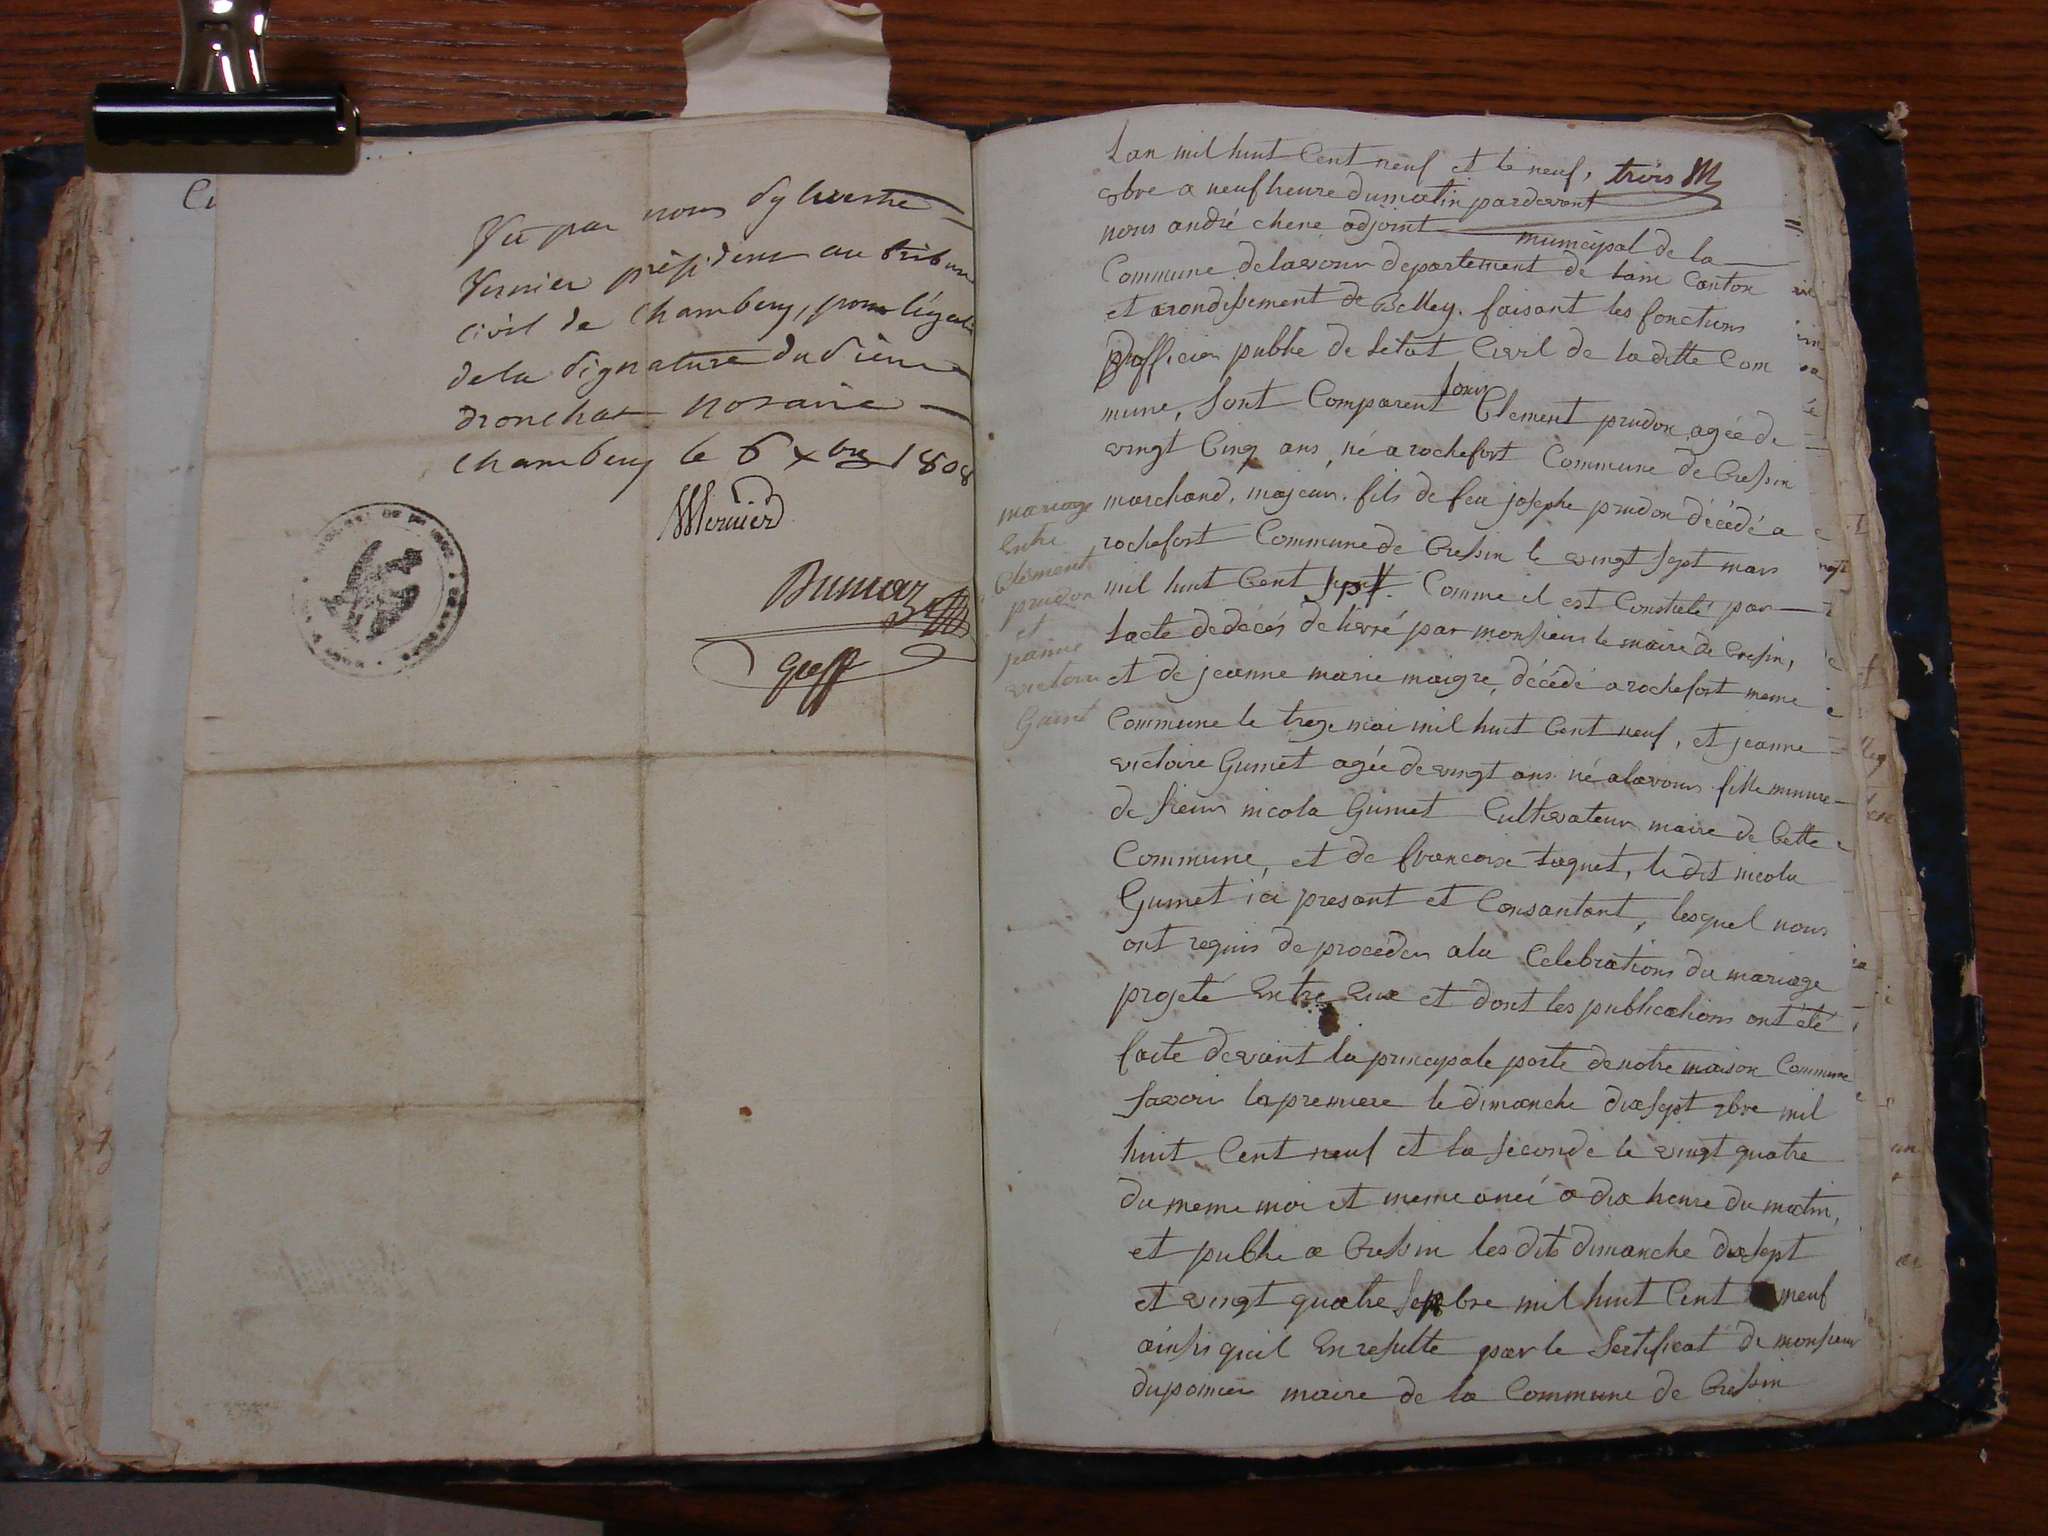 Vu par nous Sylvestre
Vernier président au tribun
civil de Chambery, pour légali
de la signature du Sieur
dronchat notaire
Chambery le 6 xbre 1808
Vernier
Dumaz
Greff
mariage
Entre
Clement
prudon
et
jeanne
victoire
Gumet
Lan mil huit Cent neuf et le neuf, trois
obre a neuf heure du matin pardevant
nous andré chene adjoint municipal de la
Commune de lavour departement de lain Canton
et arondissement de Belley. faisant les fonctions
dofficier publie de letat Civil de la ditte Com
mune, sont Comparent Louis Clement prudon agée de
vingt Cinq ans, né a rochefort Commune de Cressin
marchand, majeur, fils de feu josephe prudon décédé a
rochefort Commune de Cressin le vingt sept mars
mil huit Cent sept. Comme il est Constaté par
lacte de décés delivré par monsieur le maire de Cresin,
et de jeanne marie maigre, décédé a rochefort meme
Commune le treze mai mil huit Cent neuf, et jeanne
victoire Gumet agée de vingt ans né a lavour fille minure
de sieur nicola Gumet Cultivateur maire de Cette
Commune, et de francoise taquet, le dit nicola
Gumet ici presant et Consantant, lesquel nous
ont requis de proceder a la Celebrations du mariage
projeté Entre Eux et dont les publications ont été
faite devant la principale porte de notre maison Commune
savoir la premiere le dimanche dix sept 7bre mil
huit Cent neuf et la seconde le vingt quatre
du meme moi et meme aneé a dix heure du matin,
et publié a Cressin les dits dimanche dix sept
et vingt quatre sepbre mil huit Cent neuf
ainsis quil En resulte par le Sertificat de monsieur
duparnier maire de la Commune de Cressin